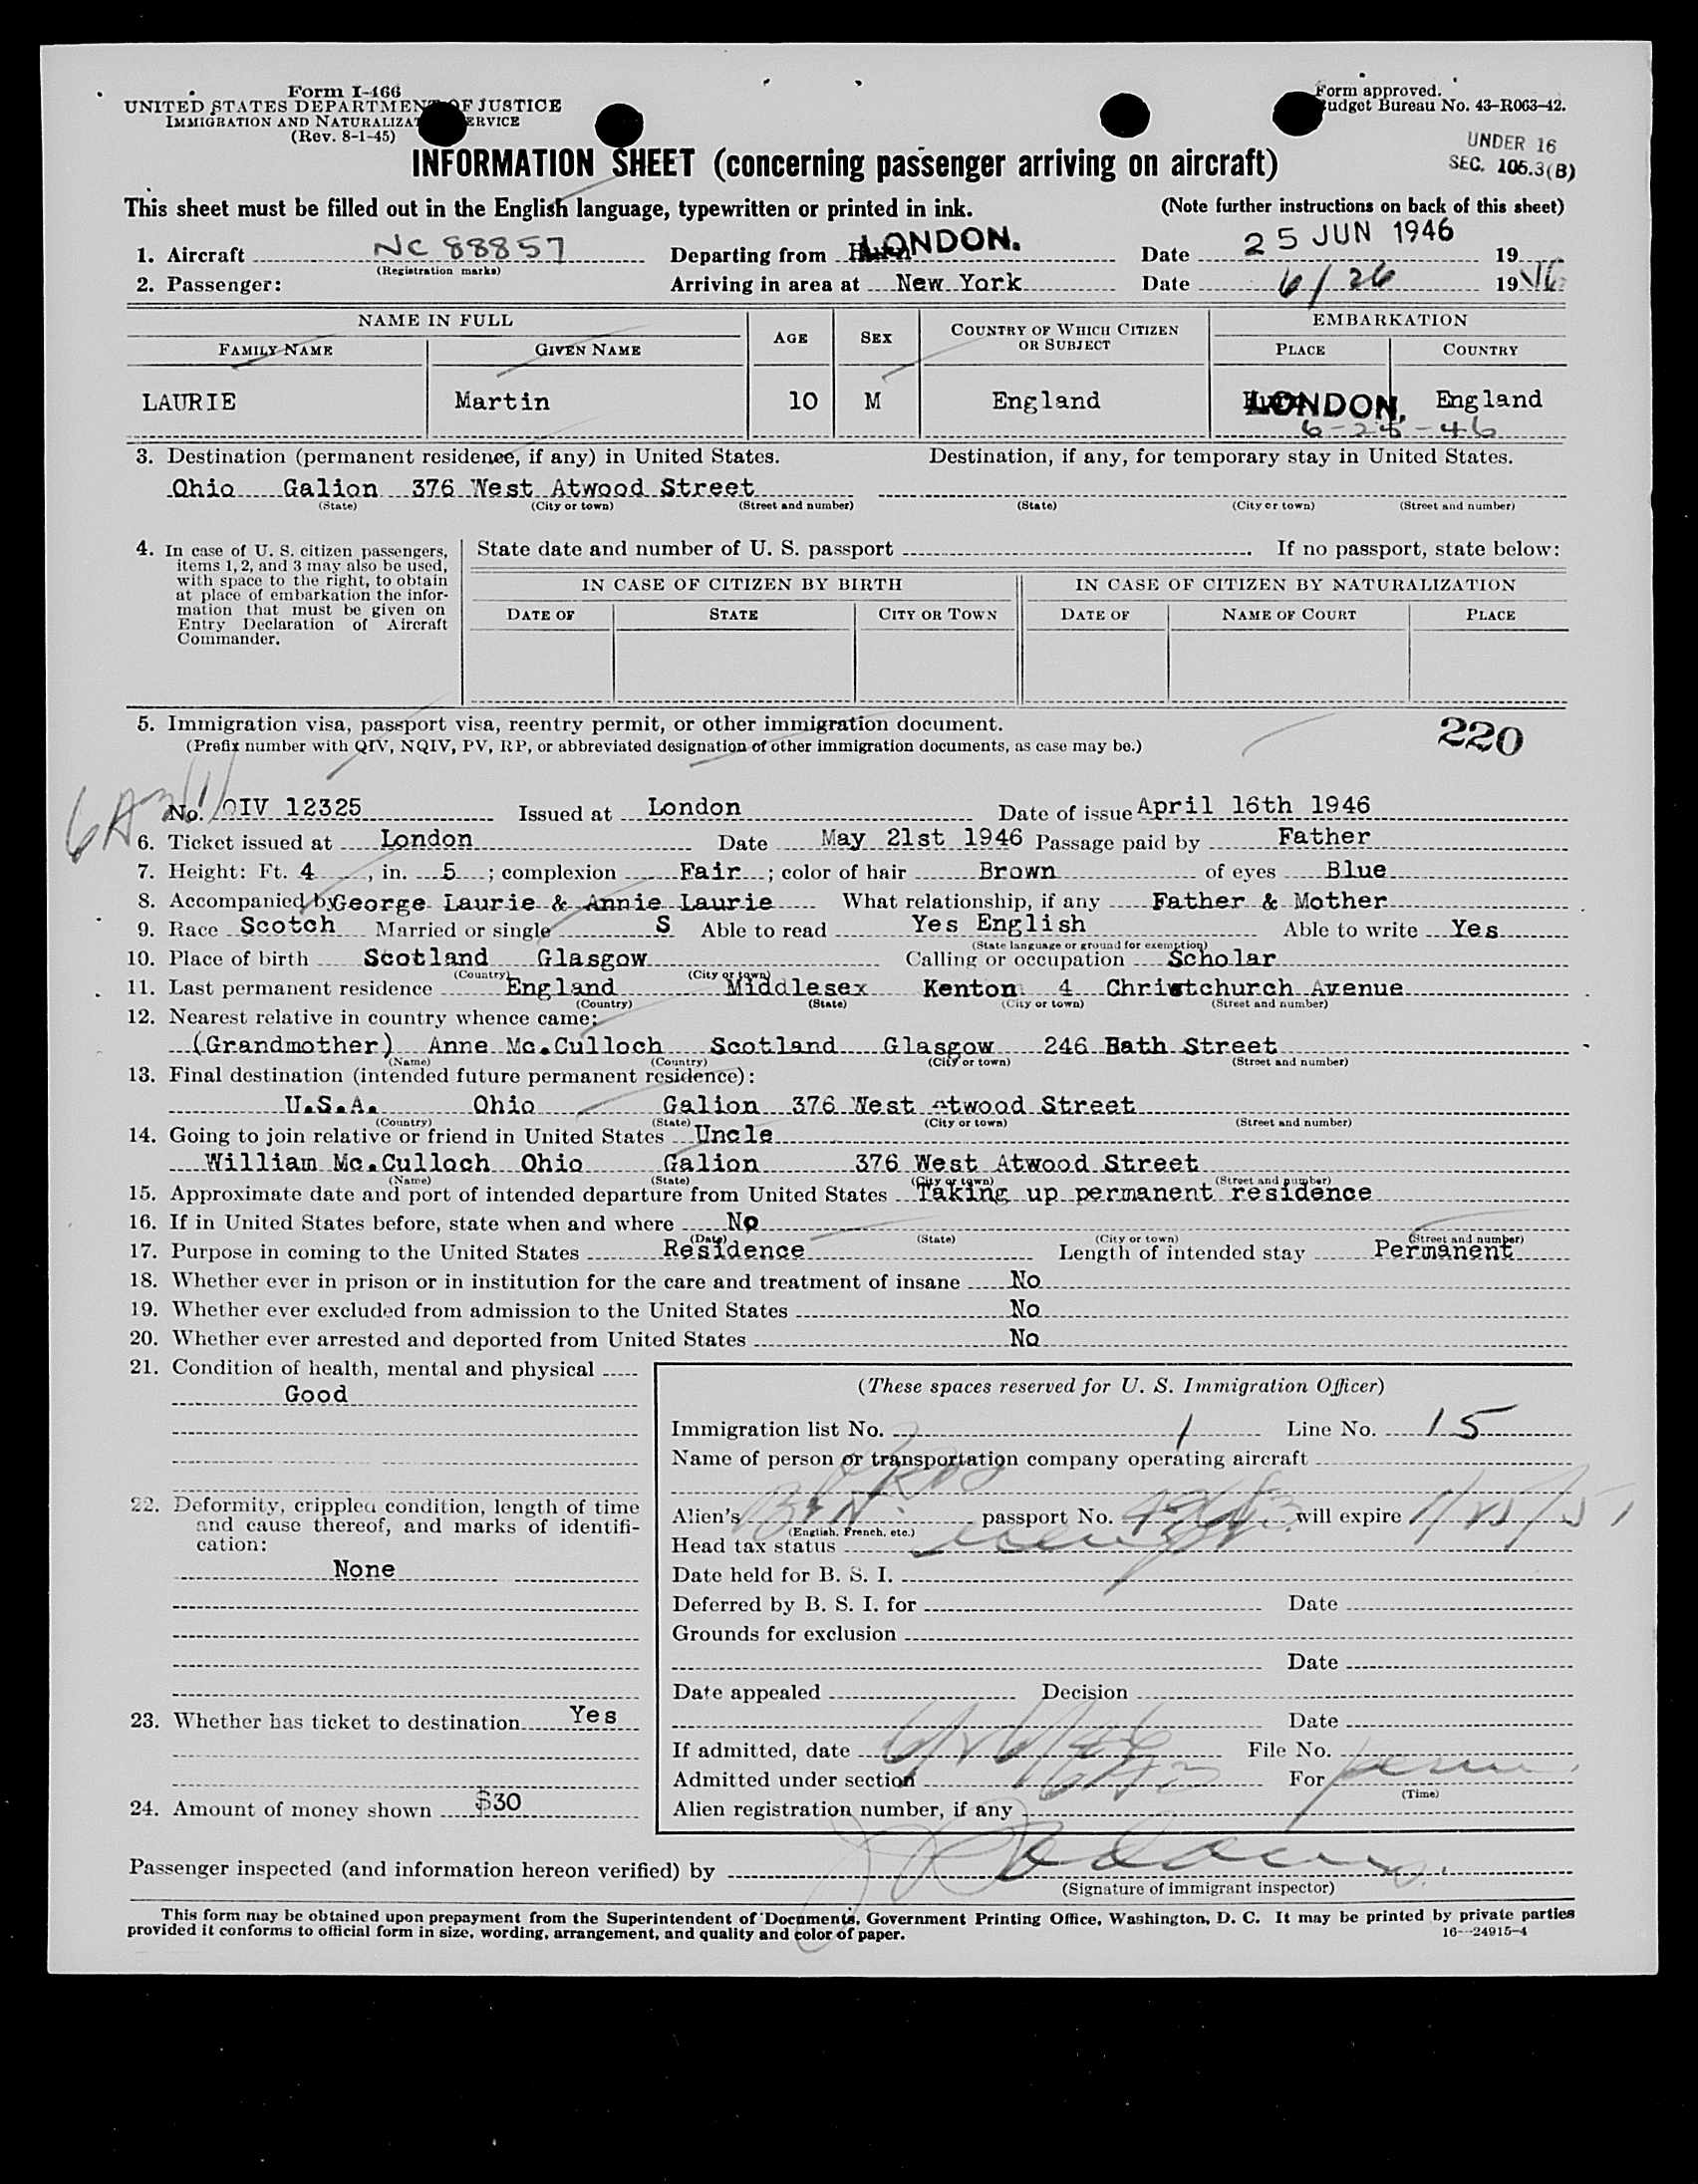 Form I-466
UNITED STATES DEPARTMENT OF JUSTICE
IMMIGRATION AND NATURALIZATION SERVICE
(Rev. 8-1-45)
Form approved.
Budget Bureau No. 43-R063-42.
UNDER 16
SEC. 105.3(B)
INFORMATION SHEET (concerning passenger arriving on aircraft)
This sheet must be filled out in the English language, typewritten or printed in ink. (Note further instructions on back of this sheet)
1. Aircraft NC 88857 Departing from LONDON. Date 25 JUN 1946 19
(Registration marks)
2. Passenger: Arriving in area at New York Date 6/26 1946
NAME IN FULL AGE SEX COUNTRY OF WHICH CITIZEN OR SUBJECT EMBARKATION
FAMILY NAME GIVEN NAME PLACE COUNTRY
LAURIE Martin 10 M England LONDON. England
6-25-46
3. Destination (permanent residence, if any) in United States. Destination, if any, for temporary stay in United States.
Ohio Galion 376 West Atwood Street
(State) (City or town) (Street and number) (State) (City or town) (Street and number)
4. In case of U. S. citizen passengers,
items 1, 2, and 3 may also be used,
with space to the right, to obtain
at place of embarkation the infor-
mation that must be given on
Entry Declaration of Aircraft
Commander.
State date and number of U. S. passport . If no passport, state below:
IN CASE OF CITIZEN BY BIRTH IN CASE OF CITIZEN BY NATURALIZATION
DATE OF STATE CITY OR TOWN DATE OF NAME OF COURT PLACE
5. Immigration visa, passport visa, reentry permit, or other immigration document.
(Prefix number with QIV, NQIV, PV, RP, or abbreviated designation of other immigration documents, as case may be.)
220
No. QIV 12325 Issued at London Date of issue April 16th 1946
6. Ticket issued at London Date May 21st 1946 Passage paid by Father
7. Height: Ft. 4, in. 5; complexion Fair; color of hair Brown of eyes Blue
8. Accompanied by George Laurie & Annie Laurie What relationship, if any Father & Mother
9. Race Scotch Married or single S Able to read Yes English Able to write Yes
(State language or ground for exemption)
10. Place of birth Scotland Glasgow Calling or occupation Scholar
(Country) (City or town)
11. Last permanent residence England Middlesex Kenton 4 Christchurch Avenue
(Country) (State) (City or town) (Street and number)
12. Nearest relative in country whence came:
(Grandmother) Anne Mc.Culloch Scotland Glasgow 246 Bath Street
(Name) (Country) (City or town) (Street and number)
13. Final destination (intended future permanent residence):
U.S.A. Ohio Galion 376 West Atwood Street
(Country) (State) (City or town) (Street and number)
14. Going to join relative or friend in United States Uncle
William Mc.Culloch Ohio Galion 376 West Atwood Street
(Name) (State) (City or town) (Street and number)
15. Approximate date and port of intended departure from United States Taking up permanent residence
16. If in United States before, state when and where No
(Date) (State) (City or town) (Street and number)
17. Purpose in coming to the United States Residence Length of intended stay Permanent
18. Whether ever in prison or in institution for the care and treatment of insane No
19. Whether ever excluded from admission to the United States No
20. Whether ever arrested and deported from United States No
21. Condition of health, mental and physical
Good
22. Deformity, crippled condition, length of time
and cause thereof, and marks of identifi-
cation:
None
23. Whether has ticket to destination Yes
24. Amount of money shown $30
(These spaces reserved for U. S. Immigration Officer)
Immigration list No. 1 Line No. 15
Name of person or transportation company operating aircraft
Alien's passport No. will expire
(English, French, etc.)
Head tax status
Date held for B. S. I.
Deferred by B. S. I. for Date
Grounds for exclusion
Date
Date appealed Decision
Date
If admitted, date 6/26/46 File No.
Admitted under section For
(Time)
Alien registration number, if any
Passenger inspected (and information hereon verified) by
(Signature of immigrant inspector)
This form may be obtained upon prepayment from the Superintendent of Documents, Government Printing Office, Washington, D. C. It may be printed by private parties
provided it conforms to official form in size, wording, arrangement, and quality and color of paper. 16—24915-4